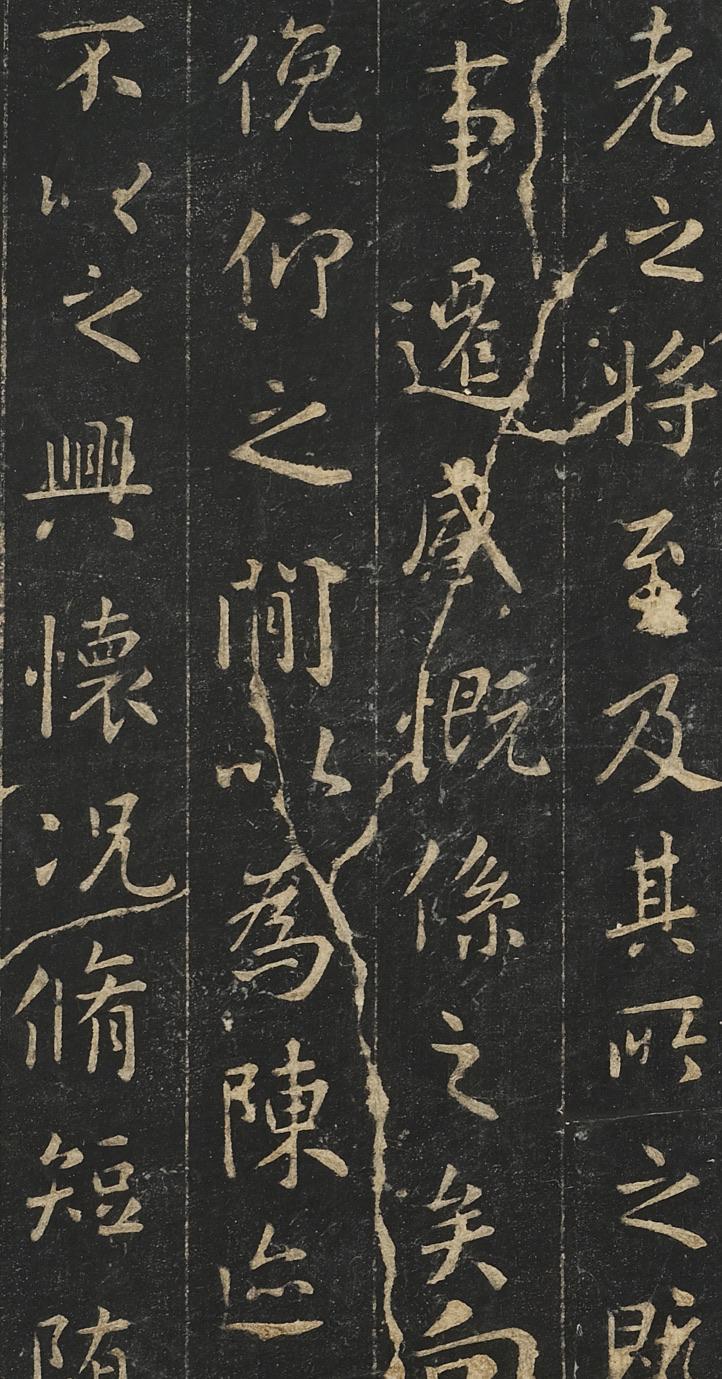 老之將至及其所之既
事遷感慨係之矣向
俛仰之間以為陳迹
不以之興懷況脩短随